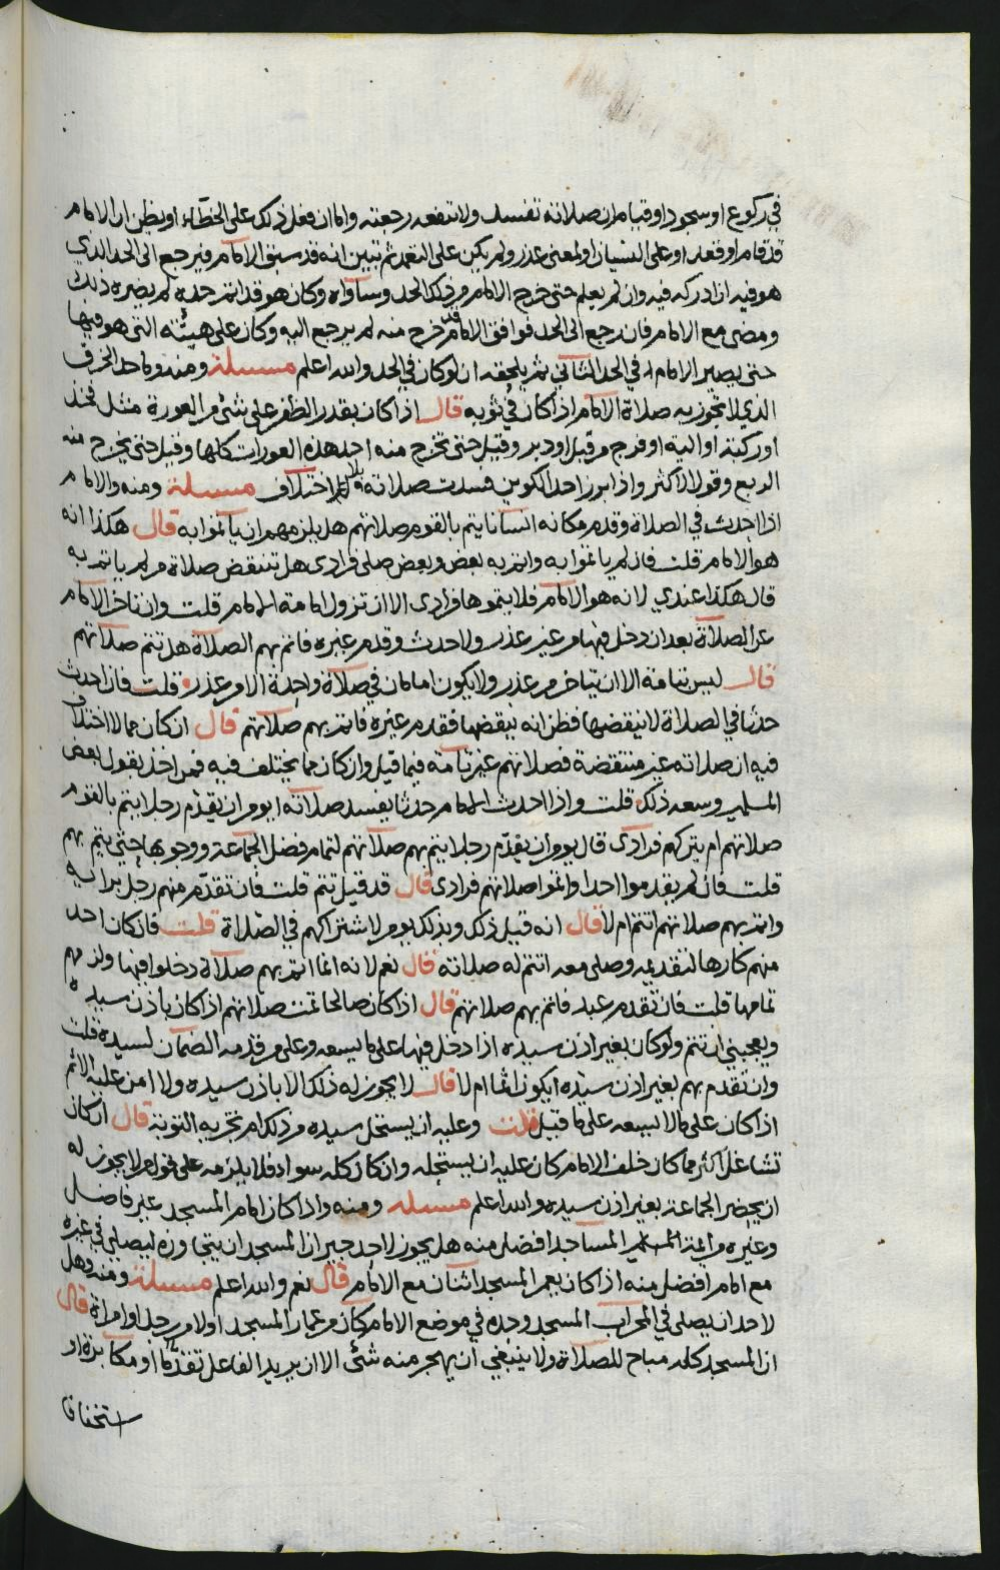 في ركوع او سجود او قيام ان صلاته تفسد ولا تنفعه رجعته واما ان فعل ذلك على الخطاء او يظن ان الامام
قد قام او قعد او على النسيان او لمعنى عذر ولم يكن على التعمد ثم تبين انه قد سبق الامام فيرجع الى الحد الذي
هو فيه ان ادركه فيه وان لم يعلم حتى خرج الامام من ذلك الحد وساواه وكان هو قد اتم حده لم يضره ذلك
ومضى مع الامام فان رجع الى الحد فوافق الامام قد خرج منه لم يرجع اليه وكان على هيئته التي هو فيها
حتى يصير الامام في الحد الثاني ثم يلحقه ان لو كان في الحد والله اعلم مسئلة ومنه وما حد الخرق
الذي لا تجوز به صلاة الامام اذا كان في ثوبه قال اذا كان بقدر الظفر على شئ من العورة مثل فخذ
او ركبة او الية او فرج من قبل او دبر وقيل حتى تخرج منه احد هذه العورات كلها وقيل حتى يخرج منه
الربع وقول الاكثر واذا برز احد الكوين فسدت صلاته بلا اختلاف مسئلة ومنه والامام
اذا احدث في الصلاة وقدم مكانه انسانا يتم بالقوم صلاتهم هل يلزمهم ان ياتموا به قال هكذا انه
هو الامام قلت فان لم ياتموا به واتم به بعض وبعض صلى فرادى هل تنتقض صلاة من لم ياتم به
قال هكذا عندي لانه هو الامام فلا يتموها فرادى الا ان تزول امامة الامام قلت وان تاخر الامام
عن الصلاة بعد ان دخل فيها من غير عذر ولا حدث وقدم غيره فاتم بهم الصلاة هل تتم صلاتهم
قال ليس بتامة الا ان يتاخر من عذر ولا يكون امامان في صلاة واحدة الا من عذر قلت فان احدث
حدثا في الصلاة لا ينقضها فظن انه ينقضها فقدم غيره فاتم بهم صلاتهم قال ان كان مما لا اختلاف
فيه ان صلاته غير منتقضة فصلاتهم غير تامة فيما قيل وان كان مما يختلف فيه فمن اخذ بقول بعض
المسلمين وسعه ذلك قلت واذا احدث الامام حدثا يفسد صلاته ايومر ان يقدم رجلا يتم بالقوم
صلاتهم ام يتركهم فرادى قال يومر ان يقدم رجلا يتم بهم صلاتهم لتمام فضل الجماعة ووجوبها حتى يتم بهم
قلت فان لم يقدموا احدا واتموا صلاتهم فرادى قال قد قيل تتم قلت فان تقدم منهم رجل برايه
واتم بهم صلاتهم اتتم ام لا قال انه قيل ذلك وبذلك يومر لاشتراكهم في الصلاة قلت فان كان احد
منهم كارها لتقديمه وصلى معه اتتم له صلاته قال نعم لانه انما اتم بهم صلاة دخلوا فيها ولزمهم
تمامها قلت فان تقدم عبد فاتم بهم صلاتهم قال اذا كان صالحا تمت صلاتهم اذا كان باذن سيده
ويعجبني ان تتم ولو كان بغير اذن سيده اذا دخل فيها على ما يسعه وعلى من قدمه الضمان لسيده قلت
وان تقدم بهم بغير اذن سيده ايكون اثما ام لا قال لا يجوز له ذلك الا باذن سيده ولا امن عليه الاثم
اذا كان على ما لا يسعه على ما قيل قلت وعليه ان يستحل سيده من ذلك ام تجزيه التوبة قال ان كان
تشاغل اكثر مما كان خلف الامام كان عليه ان يستحله وان كان كله سواء فلا يلزمه على قول من لا يجوز له
ان يحضر الجماعة بغير اذن سيده والله اعلم مسئله ومنه واذا كان امام المسجد غير فاضل
وغيره من ائمة المساجد افضل منه هل يجوز لاحد جيران المسجد ان يتجاوزه ليصلي في غيره
مع امام افضل منه اذا كان يعمر المسجد اثنان مع الامام قال نعم والله اعلم مسئلة ومنه وهل
لاحد ان يصلي في المحراب المسجد وحده في موضع الامام كان من عمار المسجد او لا من رجل او امراة قال
ان المسجد كله مباح للصلاة ولا ينبغي ان يهجر منه شئ الا ان يريد الفاعل تقدما او مكابرة او
استخفافا